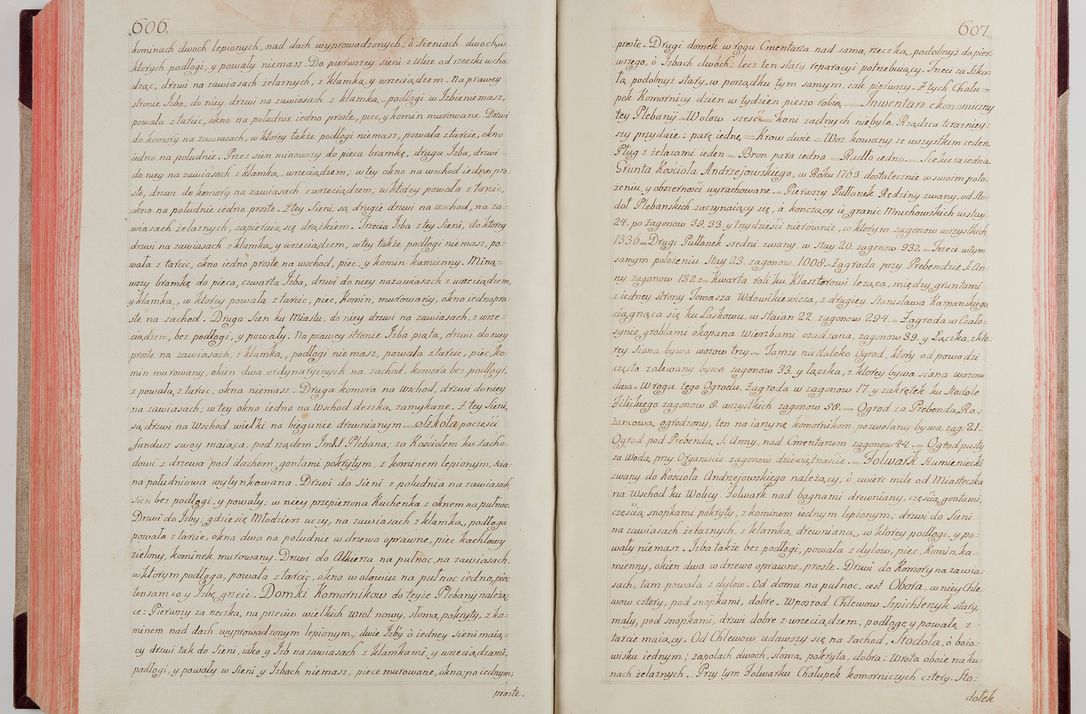 606.
kominach dwoch lepionych, nad dach wyprowadzonych; o sieniach dwoch, w
ktorych podłogi, y powały niemasz. Do pierwszey sieni z Ulice od rzeczki wcho=
dząc, drzwi na zawiasach żelaznych, z klamką, y wrzeciądzem. Na prawey
stronie Izba, do niey drzwi na zawiasach z klamką, podłogi w Izbie niemasz,
powała z tarcic, okno na południe iedno proste, piec, y komin murowane. Drzwi
do komory na zawiasach, w ktorey także podłogi niemasz, powała z tarcic, okno
iedno na południe. Przez sień minowszy do pieca bramkę, druga Izba, drzwi
do niey na zawiasach z klamką, wrzeciądzem; w tey okno na wschod iedno pro=
ste, drzwi do komory na zawiasach z wrzeciądzem; w ktorey powała z tarcic,
okno na południe iedno proste. Z tey Sieni, są, drugie drzwi na Wschod, na za=
wiasach żelaznych, zapieraią się drążkiem. Trzecia Izba z tey Sieni, do ktorey
drzwi na zawiasach z klamką, y wrzeciądzem, w tey także podłogi niemasz, po=
wała z tarcic, okno iedno proste na wschod, piec, y komin kamienny. Miną=
wszy bramkę do pieca, czwarta Izba, drzwi do niey na zawiasach z wrzeciądzem,
y klamką, w ktorey powała z tarcic, piec, komin, murowany, okno iedno pro=
ste na zachod. Druga Sien ku Miastu, do niey drzwi na zawiasach, z wrze=
ciądzem, bez podłogi, y powały. Na prawey stronie Izba piąta, drzwi do niey
proste na zawiasach, z klamką, podłogi niemasz, powała z tarcic, piec, ko=
min murowany, okien dwa ordynaryinych na zachod. komora bez podłogi,
z powałą z tarcic, okna niemasz. Druga komora na Wschod, drzwi do niey
na zawiasach; w tey okno iedno na Wschod deszką, zamykane. Z tey Sieni,
są, drzwi na Wschod wielki na biegunie drewnianym. Szkoła po części
fundusz swoy maiąca, pod rządem Plebana; za Kościołem ku zacho=
dowi z drzewa pod dachem gontami pokrytym, z kominem lepionym, scia=
na południowa wytynkowana. Drzwi do Sieni z południa na zawiasach
Sień bez podłogi, y powały; w niey przepierzona Kuchenka z oknem na pułnoc.
Drzwi do Izby, gdzie się Młodzież uczy, na zawiasach z klamką, podłoga
powała z tarcic, okna dwa na południe w drzewo oprawne, piec kachlowy
zielony, kominek murowany. Drzwi do Alkierza na pułnoc, na zawiasach,
w którym podłoga, powała z tarcic, okno w ołowiu na pułnoc iedno, piec
ten sam co y Izbę, grzeie. Domki Komornikow do teyże Plebanij należą=
ce: Pierwszy za rzeczką, na przeciw wielkich Wrot nowy, słomą, pokryty, z ko=
minem nad dach wyprowadzonym lepionym; dwie Izby o iedney Sieni maią=
cy drzwi tak do Sieni, iako, y Izb na zawiasach z klamkami, y wrzeciądzami,
podłogi, y powały w Sieni y Izbach niemasz, piece murowane, okna po iednym;
proste.
607.
proste. Drugi domek w rogu Cmentarza nad samą rzeczką, podobnyż do pier=
wszego, o Izbach dwoch, lecz ten stary reparacyi potrzebuiący. Trzeci za Szko=
łą podobnyż stary, w porządku tym samym, iak pierwszy. Z tych Chału=
pek Komornicy dzien w tydzien pieszo robią. Inwentarz ekonomiczny
tey Plebanij. Wołow sześć. koni żadnych niebyło, Rządzca teraznieij=
szy przydaie: parę iednę. Krow dwie. Woz kowany ze wszystkim ieden
Pług z żelazami ieden. Bron para iedna. Radło iedno. Siekiera iedna
Grunta Kościoła Andrzejowskiego, w Roku 1763. dostatecznie w swoim poło=
żeniu, y obszerności wyrachowane. Pierwszy Półłanek Rędziny zwany, od Sto=
doł Plebańskich zaczynaiący się, a kończący u granic Mnichowskich w stay
24. po zagonow 39. 33. y trzydzieści nierownie, w ktorym zagonow wszystkich
1336. Drugi Pułłanek sredni zwany, w stay 20. zagonow 932. Trzeci w tym
samym położeniu Stay 23. zagonow. 1008. Zagroda przy Prebendzie S. An=
ny zagonow 132. Kwarta roli ku Klasztorowi leżąca, między gruntami
z iedney strony Tomasza Wdowikiewicza, z drugiey Stanisława Karpanskiego,
ciągnąca się ku Laskowu, w Staian 22. zagonow 294. Zagroda w
groblami okopana Wierzbami osadzona, zagonow 39. y Łączka, z kto=
rey Siana bywa wozow trzy. Tamże niedaleko Ogrod, ktory od powodzi
często zalewany bywa zagonow 33. y łączka, z ktorey bywa siana wozow
dwa. W rogu tego Ogrodu, Zagroda w zagonow 17. y zakrętek ku Stodole
Filickiego zagonow 8. wszystkich zagonow 58. Ogrod za Prebendą Ro=
żańcową ogrodzony, ten na iarzynę komornikom pozwolony bywa, zag: 21.
Ogrod pod Prebendą S. Anny, nad Cmentarzem zagonow 44. Ogrod pusty
za Wodą, przy Organiście zagonow dziewiętnaście. Folwark
zwany do Kościoła Andrzejowskiego należący, o ćwierć mile od Miasteczka
na Wschod ku Wolicy. Folwark nad bagnami drewniany, częścią gontami,
częścią snopkami pokryty, z kominem iednym lepionym; drzwi do Sieni
na zawiasach żelaznych, z klamką drewnianą, w ktorey podłogi, y po=
wały niemasz. Izba także bez podłogi, powała z dylow, piec, komin, ka=
mienny, okien dwa w drzewo oprawne, proste. Drzwi do Komory na zawia=
sach, tam powała z dylow. Od domu na pułnoc, iest Obora, w niey Chle=
wow cztery, pod snopkami, dobre. W posrod Chlewow Szpichlerzyk stary,
mały, pod snopkami, drzwi dobre z wrzeciądzem; podłogę y powałę z=
tarcic maiący. Od Chlewow udawszy się na Zachod, Stodoła, o boio=
wisku iednym; zapolach dwoch, słomą pokryta, dobra. Wrota oboie na ku=
nach żelaznych. Przy tym Folwarku Chałupek komorniczych cztery. Sto=
dołek